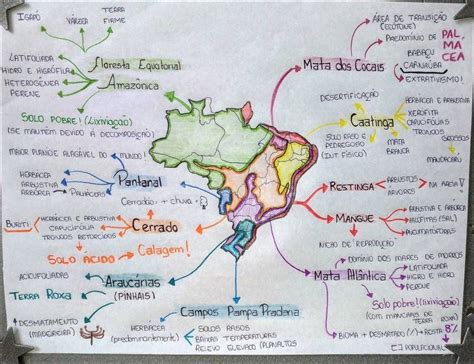 IGAPÓ
VÁRZEA
TERRA
FIRME
LATIFOLIADA
HIDRO E HIGRÓFILA
HETEROGÊNEA
PERENE
Floresta Equatorial
Amazônica
SOLO POBRE! (Lixiviação)
(SE MANTÉM DEVIDO A DECOMPOSIÇÃO)
MAIOR PLANÍCIE ALAGÁVEL DO MUNDO!
HERBÁCEA
ARBUSTIVA
ARBÓREA
PALMÁCEAS
Pantanal
Cerradão + chuva
BURITI
HERBÁCEA E ARBUSTIVA
CADUCIFÓLIA
TRONCOS RETORCIDOS
Cerrado
SOLO ÁCIDO
Calagem!
ACICUFOLIADAS
TERRA ROXA
DESMATAMENTO
(MADEIREIRA)
Araucárias
(PINHAIS)
Campos Pampa Pradaria
HERBÁCEA
(predominantemente)
SOLOS RASOS
BAIXAS TEMPERATURAS
RELEVO ELEVADO (PLANALTOS
Mata dos Cocais
ÁREA DE TRANSIÇÃO
(ECÓTONE)
PREDOMÍNIO DE
PALMACEA
BABAÇU
CARNAÚBA
EXTRATIVISMO!
DESERTIFICAÇÃO
Caatinga
HERBÁCEA E ARBUSTIVA
XERÓFITA
CADUCIFÓLIAS
TRONCOS
GROSSOS
SOLO RASO E
PEDREGOSO
(INT. FÍSICO)
MATA
BRANCA
MANDACARU
RESTINGA
ARBUSTOS
ÁRVORES
NA AREIA
MANGUE
HERBÁCEA E ARBUSTIVA
HALÓFITAS (SAL)
PNEUMATÓFORAS
NICHO DE "REPRODUÇÃO"
Mata Atlântica
DOMÍNIO DOS MARES DE MORROS
LATIFOLIADA
HIDRO E HIGRO
PERENE
Solo pobre! (Lixiviação)
(COM MANCHAS DE TERRA
ROXA)
BIOMA + DESMATADO
ROSTA 8%
[ ] POPULACIONAL